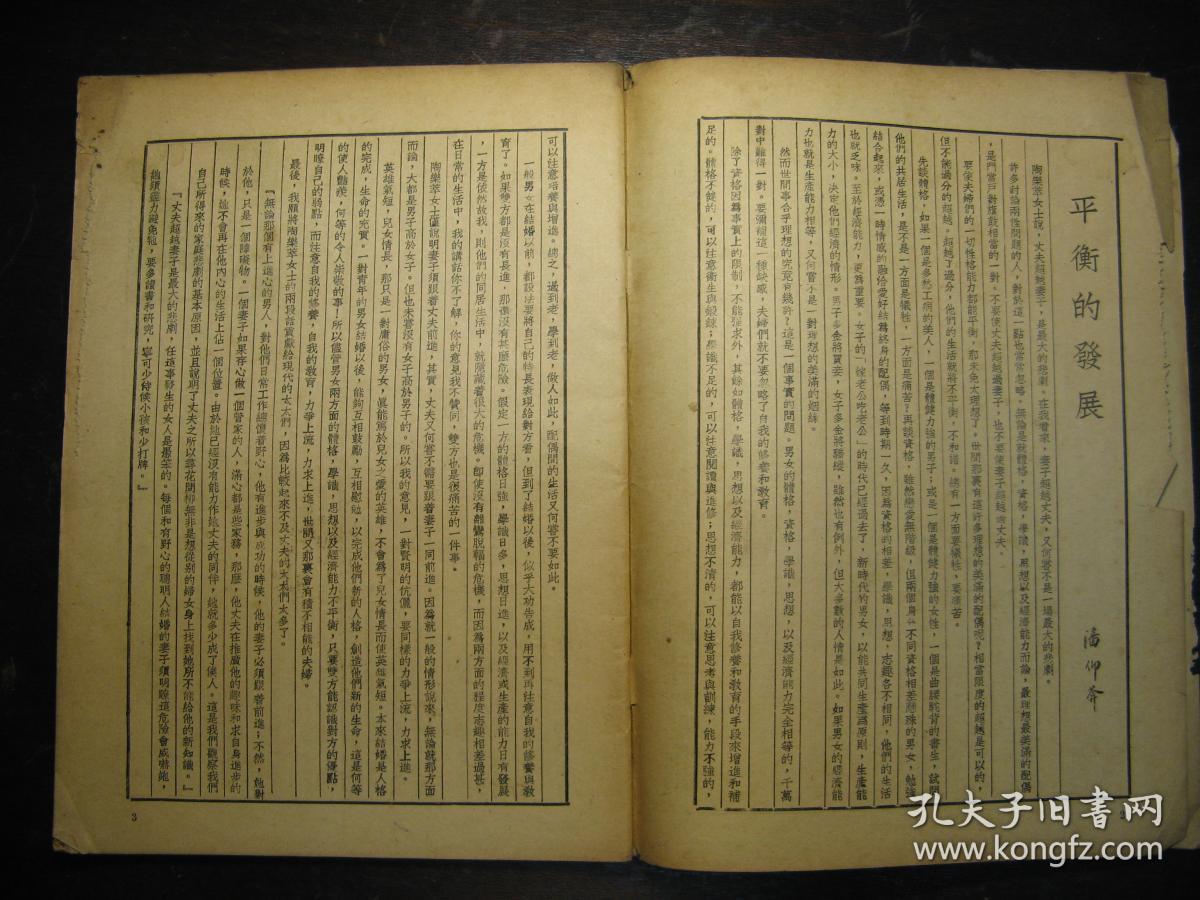 平衡的發展
潘仰堯
陶樂萃女士說,丈夫超越妻子,是最大的悲劇,在我看來,妻子超越丈夫,又何嘗不是一場最大的悲劇。
許多討論兩性問題的人,對於這一點也常當忽略。無論是就體格,資格,學識,思想以及經濟能力而論,最理想最美滿的配偶
,是門當戶對旗鼓相當的一對。不要使丈夫超越過妻子,也不要使妻子超越過丈夫。
要使夫婦們的一切性格能力都能平衡,那未免太理想了。世間那裏有這許多理想的美滿的配偶呢?相當限度的超越是可以的,
但不能過分的超越。超越了過分,他們的生活就將不平衡,不和諧。總有一方面要犧牲,要痛苦。
先談體格,如果一個是多愁工病的美人,一個是體健力強的男子;或是一個是體健力強的女性,一個是曲腰駝背的書生,試問
他們的共居生活,是不是一方面是犧牲,一方面是痛苦?再談資格,雖然戀愛無階級,但兩個身分不同資格相差懸殊的男女,勉強
結合起來,或憑一時情感的融洽愛好結爲終身的配偶,等到時期一久,因為資格的相差,學識,思想,志趣各不相同,他們的生活
也就乏味。至於經濟能力,更爲重要。女子的「嫁老公吃老公」的時代已經過去了,新時代的男女,以能共同生產爲原則,生產能
力的大小,決定他們經濟的情形。男子多金將買妾,女子多金將驕縱,雖然也有例外,但大多數的人情是如此。如果男女的經濟能
力也就是生產能力相等,又何嘗不是一對理想的美滿的姻緣。
然而世間事合乎理想的究竟有幾許?這是一個事實的問題。男女的體格,資格,學識,思想,以及經濟能力完全相等的,千萬
對中難得一對。要彌補這一種缺憾,夫婦們就不要忽略了自我的修養和教育。
除了資格因爲事實上的限制,不能強求外,其餘如體格,學識,思想以及經濟能力,都能以自我修養和教育的手段來增進和補
足的。體格不健的,可以注意衛生與鍛鍊;學識不足的,可以注意閱讀與進修;思想不清的,可以注意思考與訓練,能力不強的,
可以注意培養與增進。總之,過到老,學到老,做人如此,配偶間的生活又何嘗不要如此。
一般男女在結婚以前,都設法要將自己的特長表現給對方看,但到了結婚以後,似乎大功告成,用不到再注意自我的修養與教
育了。如果雙方都是沒有長進,那還沒有甚麼危險。假定一方的體格日強,學識日多,思想日進,以及經濟或生產的能力日有發展
,一方是依然故我,則他們的同居生活中,就隱藏着很大的危機。即使沒有離鸞脫輻的危機,而因爲兩方面的程度志趣相差過甚,
在日常的生活中,我的講話你不了解,你的意見我不贊同,雙方也是很痛苦的一件事。
陶樂萃女士僅說明妻子須跟着丈夫前進,其實,丈夫又何嘗不需要跟着妻子一同前進。因為就一般的情形說來,無論就那方面
而論,大都是男子高於女子。但也未嘗沒有女子高於男子的。所以我的意見,一對賢明的伉儷,要同樣的力爭上流,力求上進。
英雄氣短,兒女情長,那只是一對庸俗的男女,眞能篤於兒女之愛的英雄,不會爲了兒女情長而使英雄氣短。本來結婚是人格
的完成,生命的充實。一對青年的男女結婚以後,能夠互相鼓勵,互相慰勉,以完成他們新的人格,創造他們新的生命,這是何等
的使人豔羨,何等的令人崇敬的事!所以儘管男女兩方面的體格,學識,思想以及經濟能力不平衡,只要雙方能認識對方的優點,
明瞭自己的弱點,而注意自我的修養,自我的教育,力爭上流,力求上進,世間又那裏會有積不相能的夫婦。
最後,我願將陶樂萃女士的兩段話貢獻給現代的太太們,因爲比較起來不及丈夫的太太們太多了。
『無論那個有上進心的男人,對他們日常工作總懷着野心,他有進步與成功的時候,他的妻子必須跟着前進;不然,她對
於他,只是一個障礙物。一個妻子如果存心做一個管家的人,滿心都是些家務,那麼,他丈夫在推廣他的趣味和求自身進步的
時候,她不會再在他內心的生活上佔一個位置。由於她已經沒有能力作她丈夫的同伴,她就多少成了僕人。這是我們觀察我們
自己所得來的家庭悲劇的基本原因,並且說明了丈夫之所以尋花問柳無非是想從別的婦女身上找到她所不能給他的新知識。』
『丈夫超越妻子是最大的悲劇,任這事發生的女人是最笨的。每個和有野心的聰明人結婚的妻子須明瞭這危險會威嚇她,
她須盡力避免牠,要多讀書和研究,寧可少侍候小孩和少打牌。』
3
孔夫子旧书网
www.kongfz.com